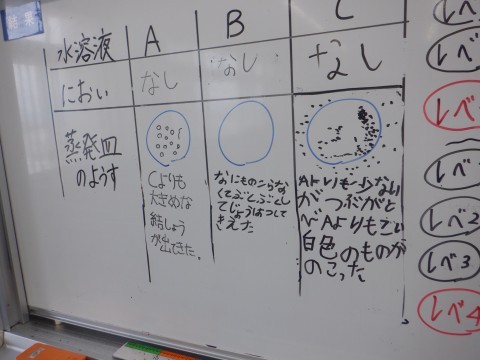 結果
水溶液 A B C
におい なし なし なし
蒸発皿
のようす
Cよりも
大きめな
結しょう
が出てきた。
なにものこらな
くてぶとぶとし
てじょうはつして
きえた
Aよりも少ない
がつぶがと
Aよりもこい
白色のものが
のこった
レベ
レベ
レベ
レベ
レベ2
レベ3
レベ4